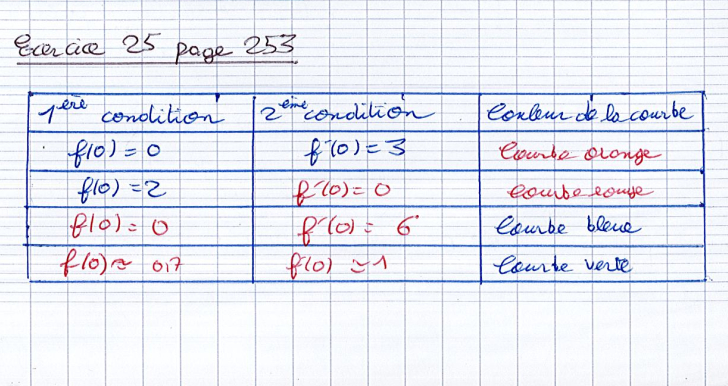 Exercice 25 page 253
1ère condition 2ème condition Couleur de la courbe
f(0) = 0 f'(0) = 3 Courbe orange
f(0) = 2 f'(0) = 0 Courbe rouge
f(0) = 0 f'(0) = 6 Courbe bleue
f(0) ≈ 0,7 f'(0) ≃ 1 Courbe verte